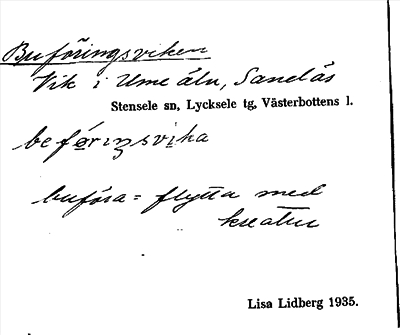 Buföringsviken
Vik i Ume älv, Sandås
Stensele sn, Lycksele tg, Västerbottens l.
beføriŋsvika
buföra = flytta med
kreatur
Lisa Lidberg 1935.